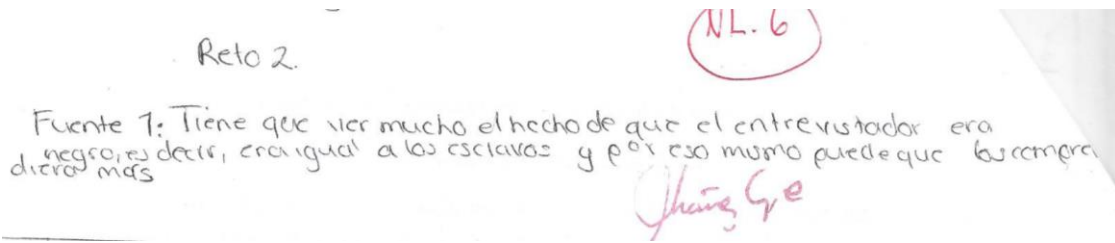 NL. 6
Reto 2.
Fuente 1: Tiene que ver mucho el hecho de que el entrevistador era
negro, es decir, era igual a los esclavos y por eso mismo puede que los compren
diera más